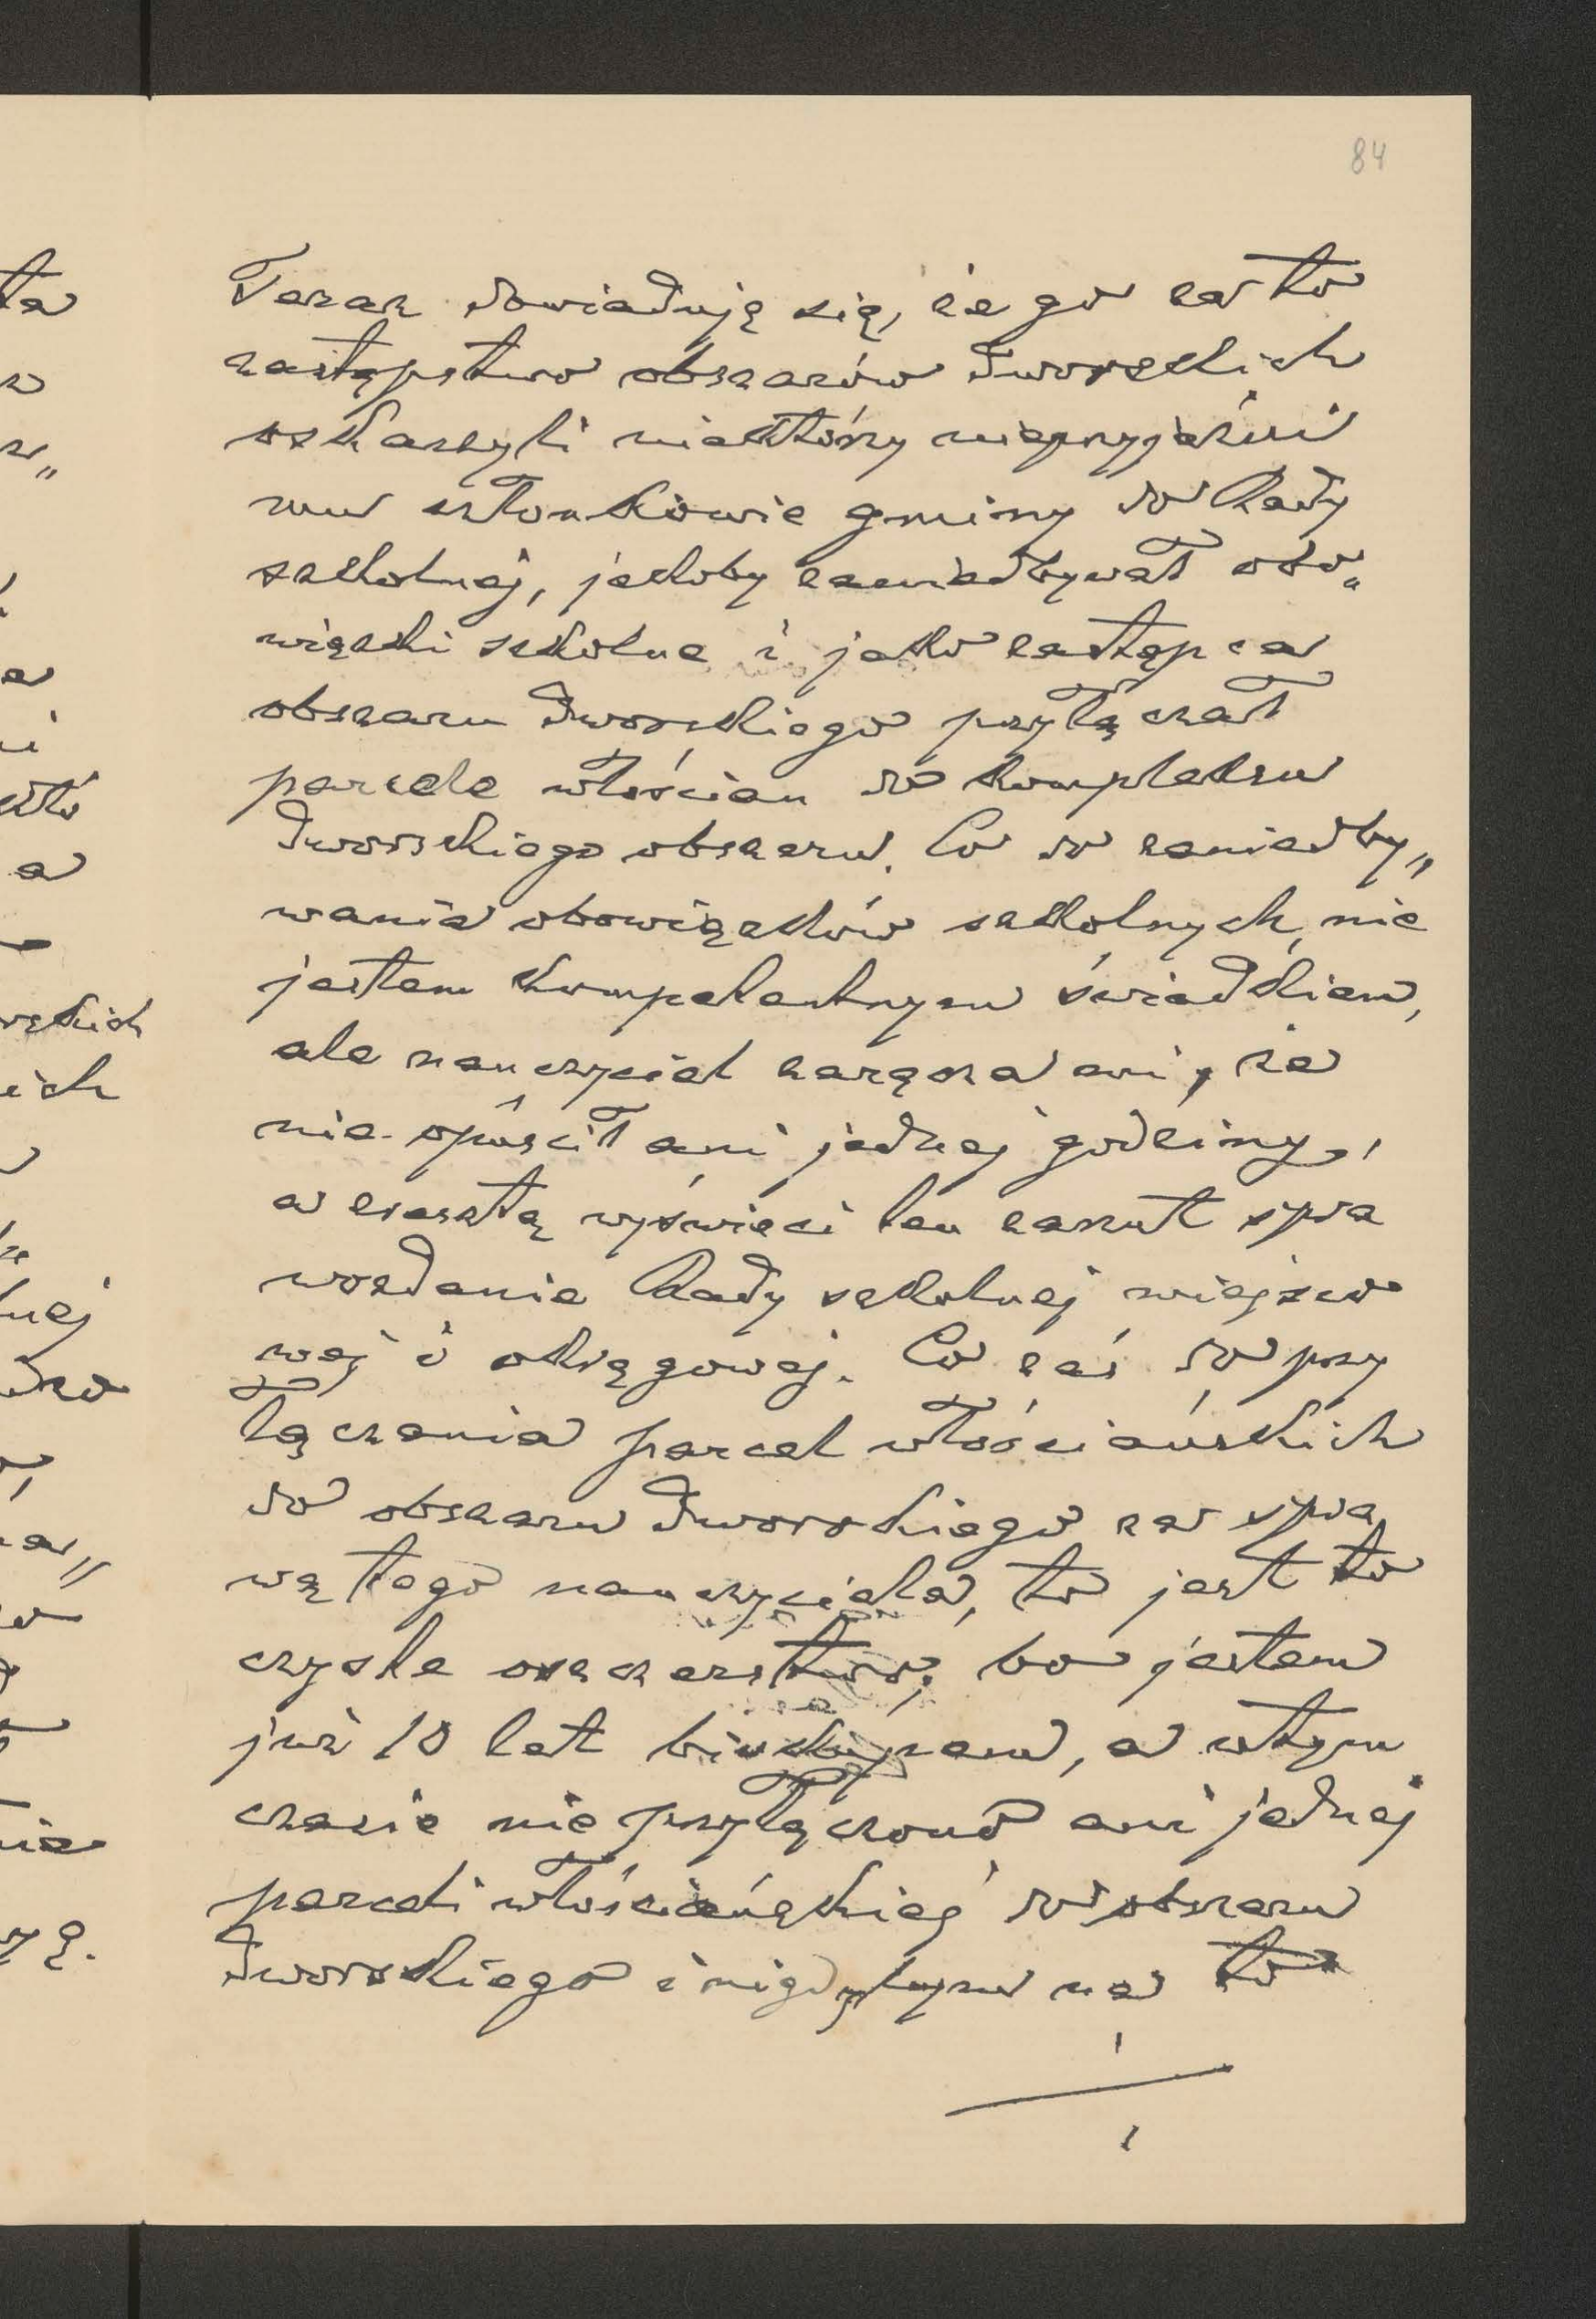 84
Teraz dowiaduję się, że go za to
zastępstwo obszarów dworskich
oskarżyli niektórzy nieprzyjaźni
mu członkowie gminy do Rady
szkolnej, jakoby zaniedbywał obo„
wiązki szkolne i jako zastępca
obszaru dworskiego przyłączał
parcele włościan do kompleksu
dworskiego obszaru. Co do zaniedby„
wania obowiązków szkolnych, nie
jestem kompetentnym świadkiem,
ale nauczyciel zaręcza mi, że
nie opuścił ani jednej godziny,
a zresztą wyświeci ten zarzut spra
wozdanie Rady szkolnej miejsco
wej i okręgowej. Co zaś do przy
łączania parcel włościańskich
do obszaru dworskiego za spra
wą tego nauczyciela, to jest to
czyste oszczerstwo, bo jestem
już 10 lat biskupem, a w tym
czasie nie przyłączono ani jednej
parceli włościańskiej do obszaru
dworskiego i nigdybym na to
./.
ta
wskich
ich
nej